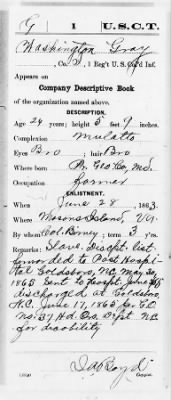 G | 1 | U.S.C.T.
Washington Gray
Co. G, 1 Reg't U.S. Col'd Inf.
Appears on
Company Descriptive Book
of the organization named above.
DESCRIPTION.
Age 24 years; height 5 feet 9 inches.
Complexion Mulatto
Eyes Bro ; hair Bro
Where born Pr. Geo Co, Md.
Occupation Farmer
ENLISTMENT.
When June 28, 1863.
Where Masons Island, Va
By whom Col. Birney ; term 3 y'rs.
Remarks: Slave. Descpt. list
forwarded to Post Hospi-
tal Goldsboro, N.C. May 30,
1865 Sent to
discharged at Goldsboro,
N.C. June 17, 1865 per G.O.
No. 37 Hd. Qrs. Dept. N.C.
for disability
Boyd
Copyist.